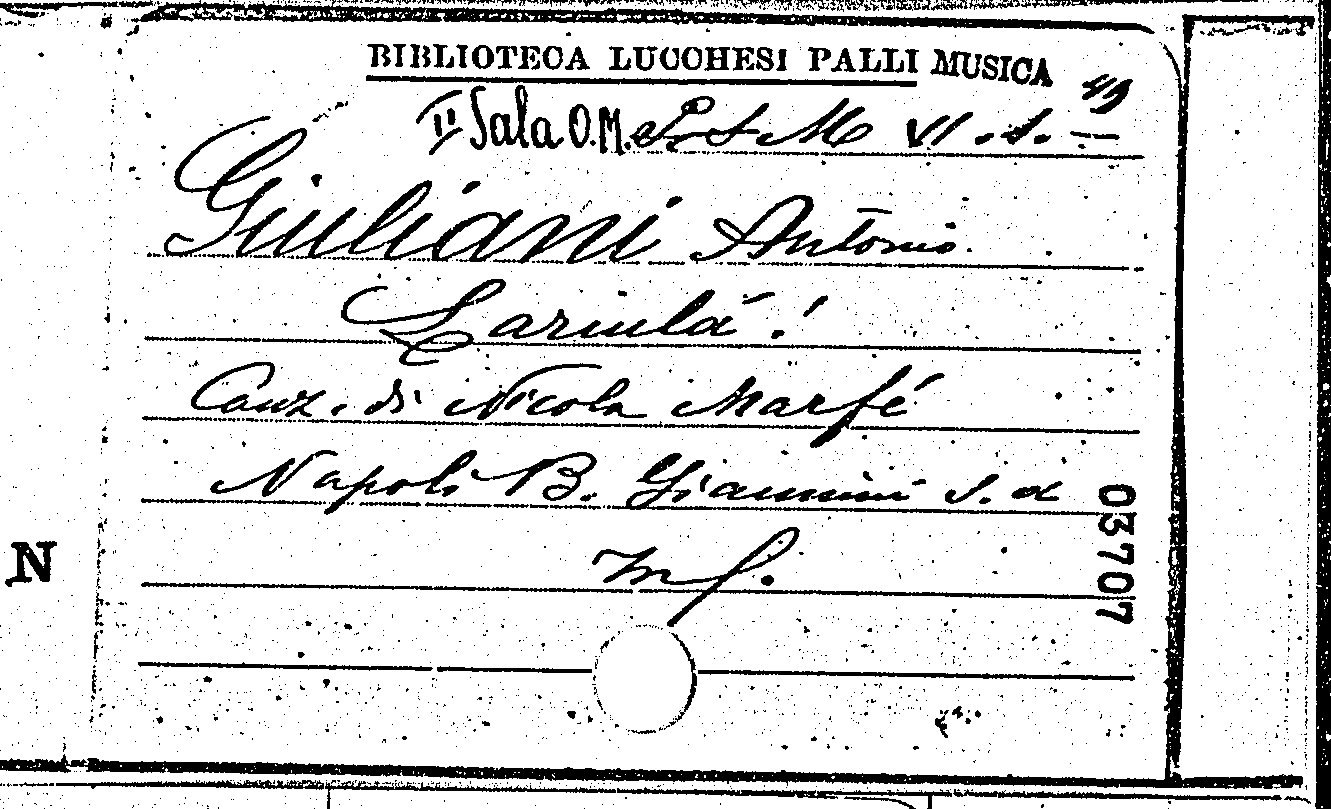 BIBLIOTECA LUCCHESI PALLI MUSICA
49
II Sala O.M. P. S. M VI. 1. —
Giuliani Antonio
Lariulà!
Canz. di Nicola Marfé
Napoli B. Giannini s. d
In f.
03707
N